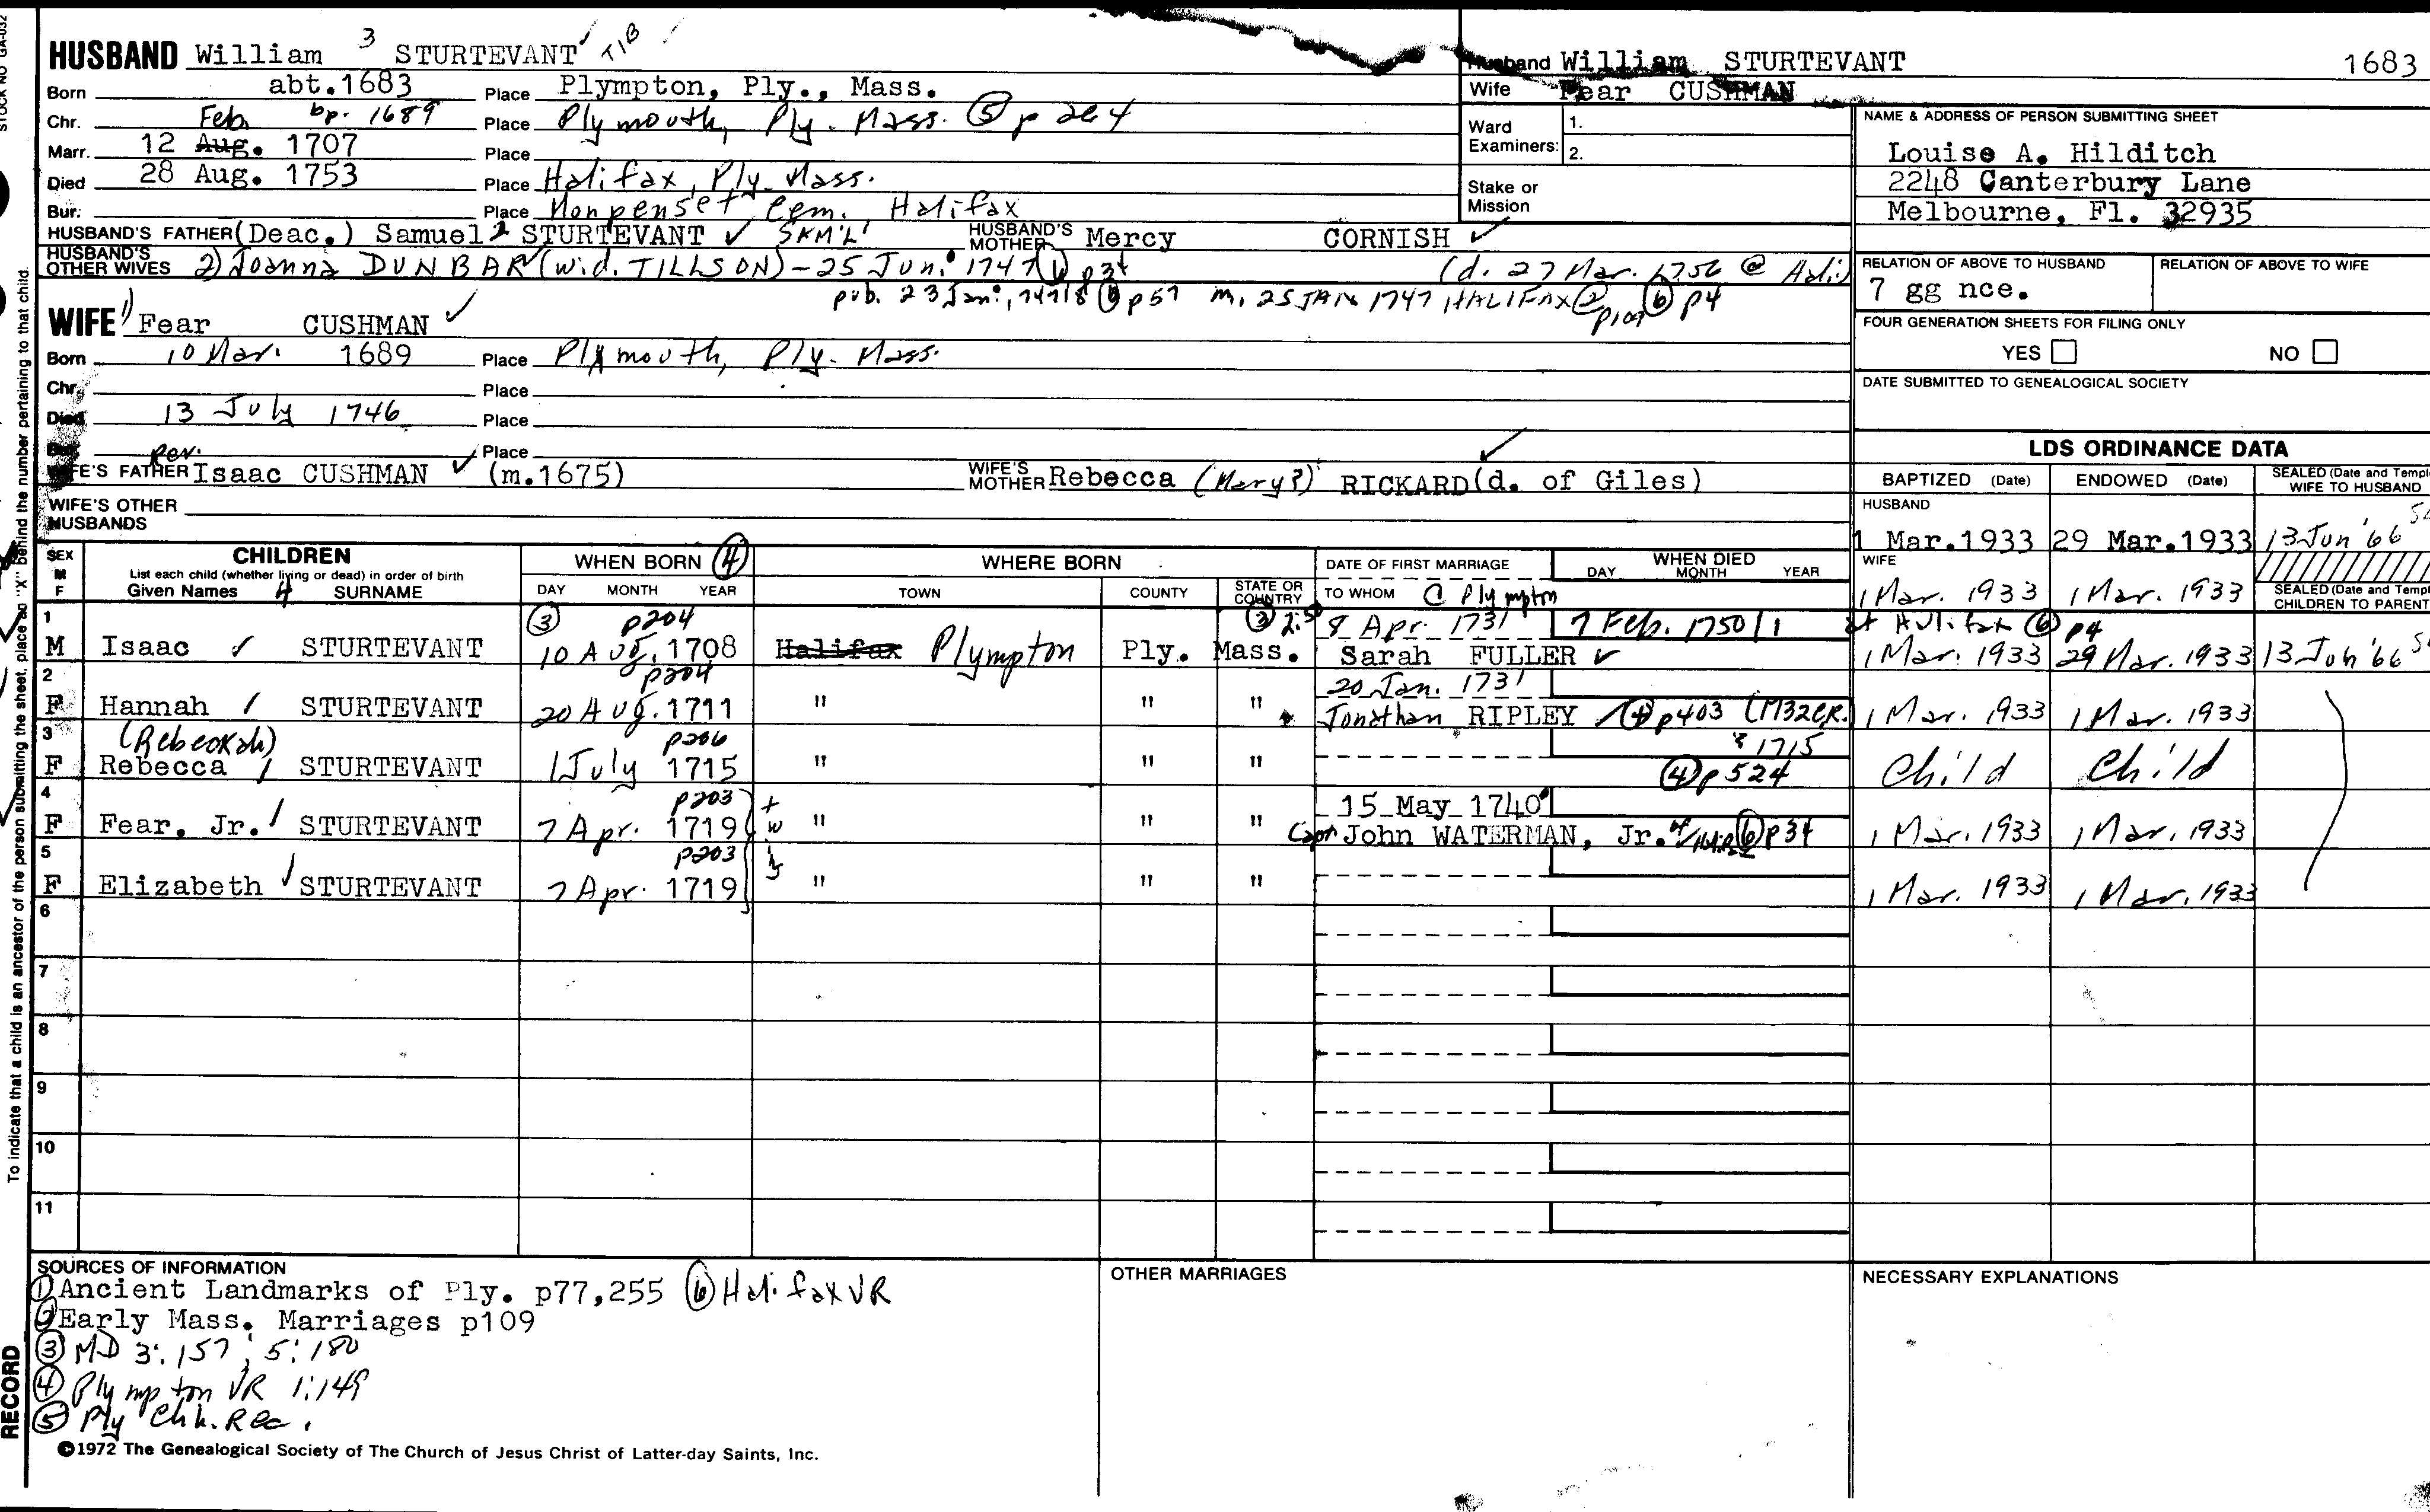 STOCK NO GA-032
HUSBAND William 3 STURTEVANT TIB
Born abt.1683 Place Plympton, Ply., Mass.
Chr. Feb bp. 1689 Place Plymouth, Ply. Mass. ⑤ p 264
Marr. 12 Aug. 1707 Place
Died 28 Aug. 1753 Place Halifax, Ply. Mass.
Bur. Place Monpenset Cem., Halifax
HUSBAND'S FATHER (Deac.) Samuel 2 STURTEVANT ✓ SAM'L HUSBAND'S MOTHER Mercy CORNISH ✓
HUSBAND'S OTHER WIVES 2) Joanna DUNBAR (wid. TILLSON) - 25 Jun. 1747 p34 (d. 27 Mar. 1756 @ Hali)
pub. 23 Jan., 1747/8 p57 m. 25 JAN 1747 HALIFAX ② p109 ⑥ p4
WIFE 1) Fear CUSHMAN ✓
Born 10 Mar. 1689 Place Plymouth, Ply. Mass.
Chr. Place
Died 13 July 1746 Place
Bur. Place
WIFE'S FATHER Rev. Isaac CUSHMAN ✓ (m.1675) WIFE'S MOTHER Rebecca (Mary?) RICKARD (d. of Giles) ✓
WIFE'S OTHER HUSBANDS
Husband William STURTEVANT 1683
Wife Fear CUSHMAN
Ward Examiners: 1.
2.
Stake or Mission
NAME & ADDRESS OF PERSON SUBMITTING SHEET
Louise A. Hilditch
2248 Canterbury Lane
Melbourne, Fl. 32935
RELATION OF ABOVE TO HUSBAND RELATION OF ABOVE TO WIFE
7 gg nce.
FOUR GENERATION SHEETS FOR FILING ONLY
YES NO
DATE SUBMITTED TO GENEALOGICAL SOCIETY
LDS ORDINANCE DATA
BAPTIZED (Date) ENDOWED (Date) SEALED (Date and Templ WIFE TO HUSBAND
HUSBAND
1 Mar.1933 29 Mar.1933 13 Jun '66
WIFE
1 Mar. 1933 1 Mar. 1933 SEALED (Date and Templ CHILDREN TO PARENT
SEX M F CHILDREN WHEN BORN ④ WHERE BORN DATE OF FIRST MARRIAGE WHEN DIED
List each child (whether living or dead) in order of birth
Given Names 4 SURNAME DAY MONTH YEAR TOWN COUNTY STATE OR COUNTRY TO WHOM @ Plympton DAY MONTH YEAR
1 ③ p204 ③ 2:5 8 Apr. 1731 7 Feb. 1750/1 at Halifax ⑥ p4
M Isaac ✓ STURTEVANT 10 Aug. 1708 Halifax Plympton Ply. Mass. Sarah FULLER ✓ 1 Mar. 1933 29 Mar. 1933 13 Jun '66
2 p204 20 Jan. 1731
F Hannah / STURTEVANT 20 Aug. 1711 " " " Jonathan RIPLEY ④ p403 (1732 C.R.) 1 Mar. 1933 1 Mar. 1933
3 (Rebeckah) p206 1715
F Rebecca / STURTEVANT 1 July 1715 " " " ④ p524 Child Child
4 p203 15 May 1740
F Fear, Jr. / STURTEVANT 7 Apr. 1719 " " " Capt John WATERMAN, Jr. of ⑥ p34 1 Mar. 1933 1 Mar. 1933
5 p203
F Elizabeth / STURTEVANT 7 Apr. 1719 twins " " " 1 Mar. 1933 1 Mar. 1933
6
7
8
9
10
11
SOURCES OF INFORMATION
① Ancient Landmarks of Ply. p77,255 ⑥ Halifax VR
② Early Mass. Marriages p109
③ MD 3:157; 5:180
④ Plympton VR 1:149
⑤ Ply Chh. Rec.
OTHER MARRIAGES
NECESSARY EXPLANATIONS
©1972 The Genealogical Society of The Church of Jesus Christ of Latter-day Saints, Inc.
To indicate that a child is an ancestor of the person submitting the sheet, place an "X" behind the number pertaining to that child.
RECORD